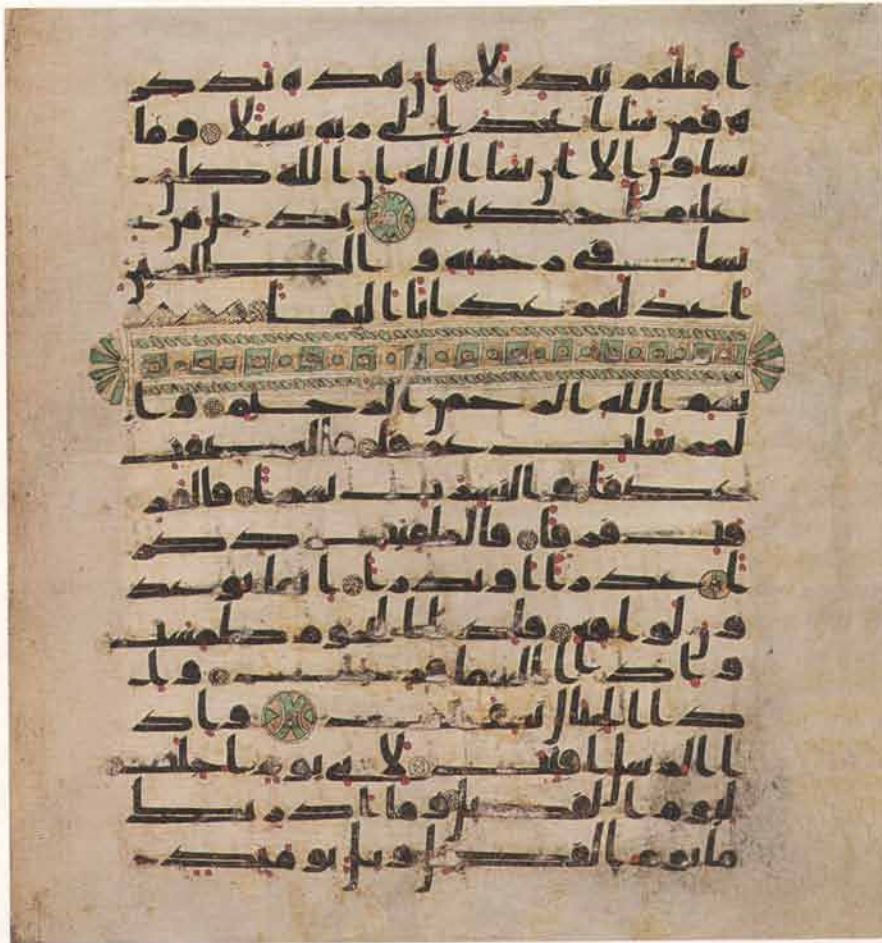 ا مثلهم تبديلا ان هذه تذكر
ه فمن شا اتخذ الى ربه سبيلا وما
تشاون الا ان يشا الله ان الله كان
عليما حكيما يدخل من
يشا في رحمته والظلمين
اعد لهم عذابا اليما
بسم الله الرحمن الرحيم وا
لمرسلت عرفا فالعصفت
عصفا والنشرت نشرا فالفر
قت فرقا فالملقيت ذكر
ا عذرا او نذرا انما توعد
ون لوقع فاذا النجوم طمست
واذا السما فرجت وا
ذا الجبال نسفت واذ
ا الرسل اقتت لاي يوم اجلت
ليوم الفصل وما ادريك
ما يوم الفصل ويل يومئذ